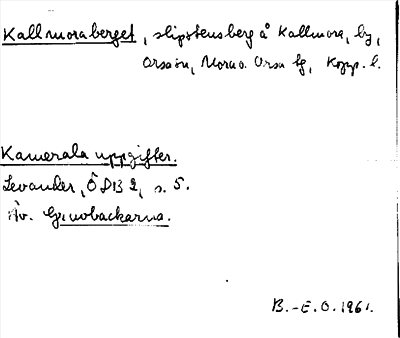 Kallmoraberget, slipstensberg å Kallmora, by,
Orsa sn, Mora o. Orsa tg, Kopp. l.
Kamerala uppgifter.
Levander, ÖDB 2, s. 5.
Äv. Gruvbackarna.
B.-E.O. 1961.